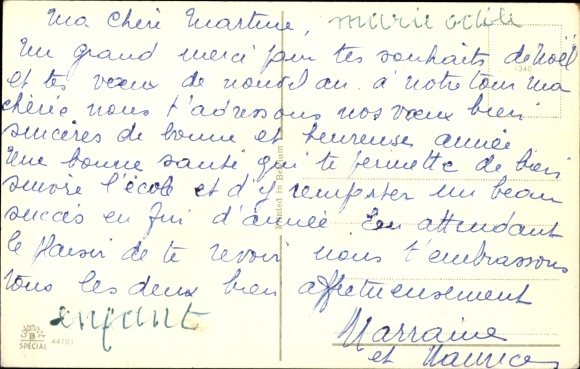 Ma chère Martine, marie odile
Un grand merci pour tes souhaits de Noël
1340
et tes vœux de nouvel an. à notre tour ma
chérie nous t'adressons nos vœux bien
sincères de bonne et heureuse année
Une bonne santé qui te permette de bien
suivre l'école et d'y remporter un beau
succès en fin d'année En attendant
le plaisir de te revoir nous t'embrassons
tous les deux bien affectueusement
enfant
Marraine
et Maurice
Printed in Belgium
SPECIAL 44101